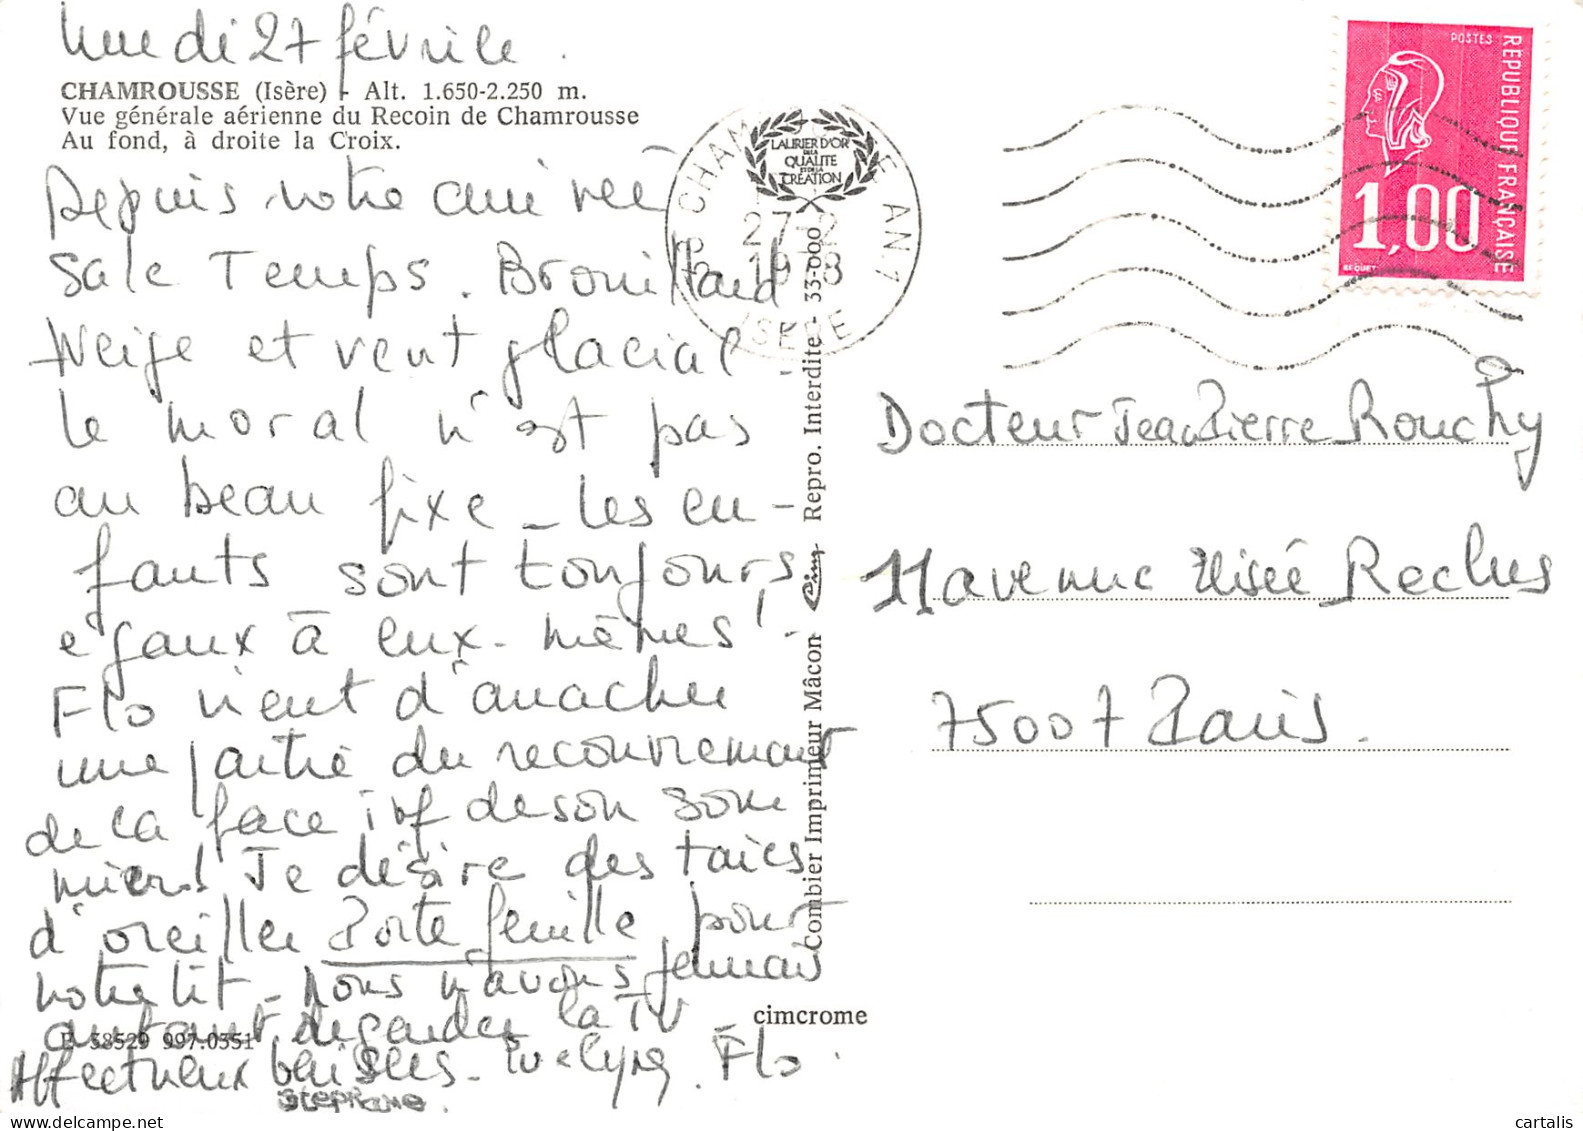 lundi 27 février.
CHAMROUSSE (Isère) - Alt. 1.650-2.250 m.
Vue générale aérienne du Recoin de Chamrousse
Au fond, à droite la Croix.
Depuis notre arrivée
Sale Temps. Brouillard
Neige et vent glacial.
le moral n'est pas
au beau fixe - les en-
fants sont toujours
egaux à eux-mêmes!
Flo vient d'arracher
une partie du recouvrement
de la face inf de son som
mier! Je désire des taies
d'oreiller Porte feuille pour
notre lit - Nous n'avons jamais
autant regarder la TV
Affectueux baisers - Evelyne. Flo.
Stephane.
E 38529 997.0351
cimcrome
Combier Imprimeur Mâcon Cim Repro. Interdite - 33-000
LAURIER D'OR
DE LA
QUALITE
ET DE LA
CRÉATION
CHAM
27-2
19 8
ISERE
POSTES
RÉPUBLIQUE FRANÇAISE
1,00
BEQUET
Docteur Jean Pierre Rouchy
11 avenue Elisée Reclus
75007 Paris.
www.delcampe.net
cartalis